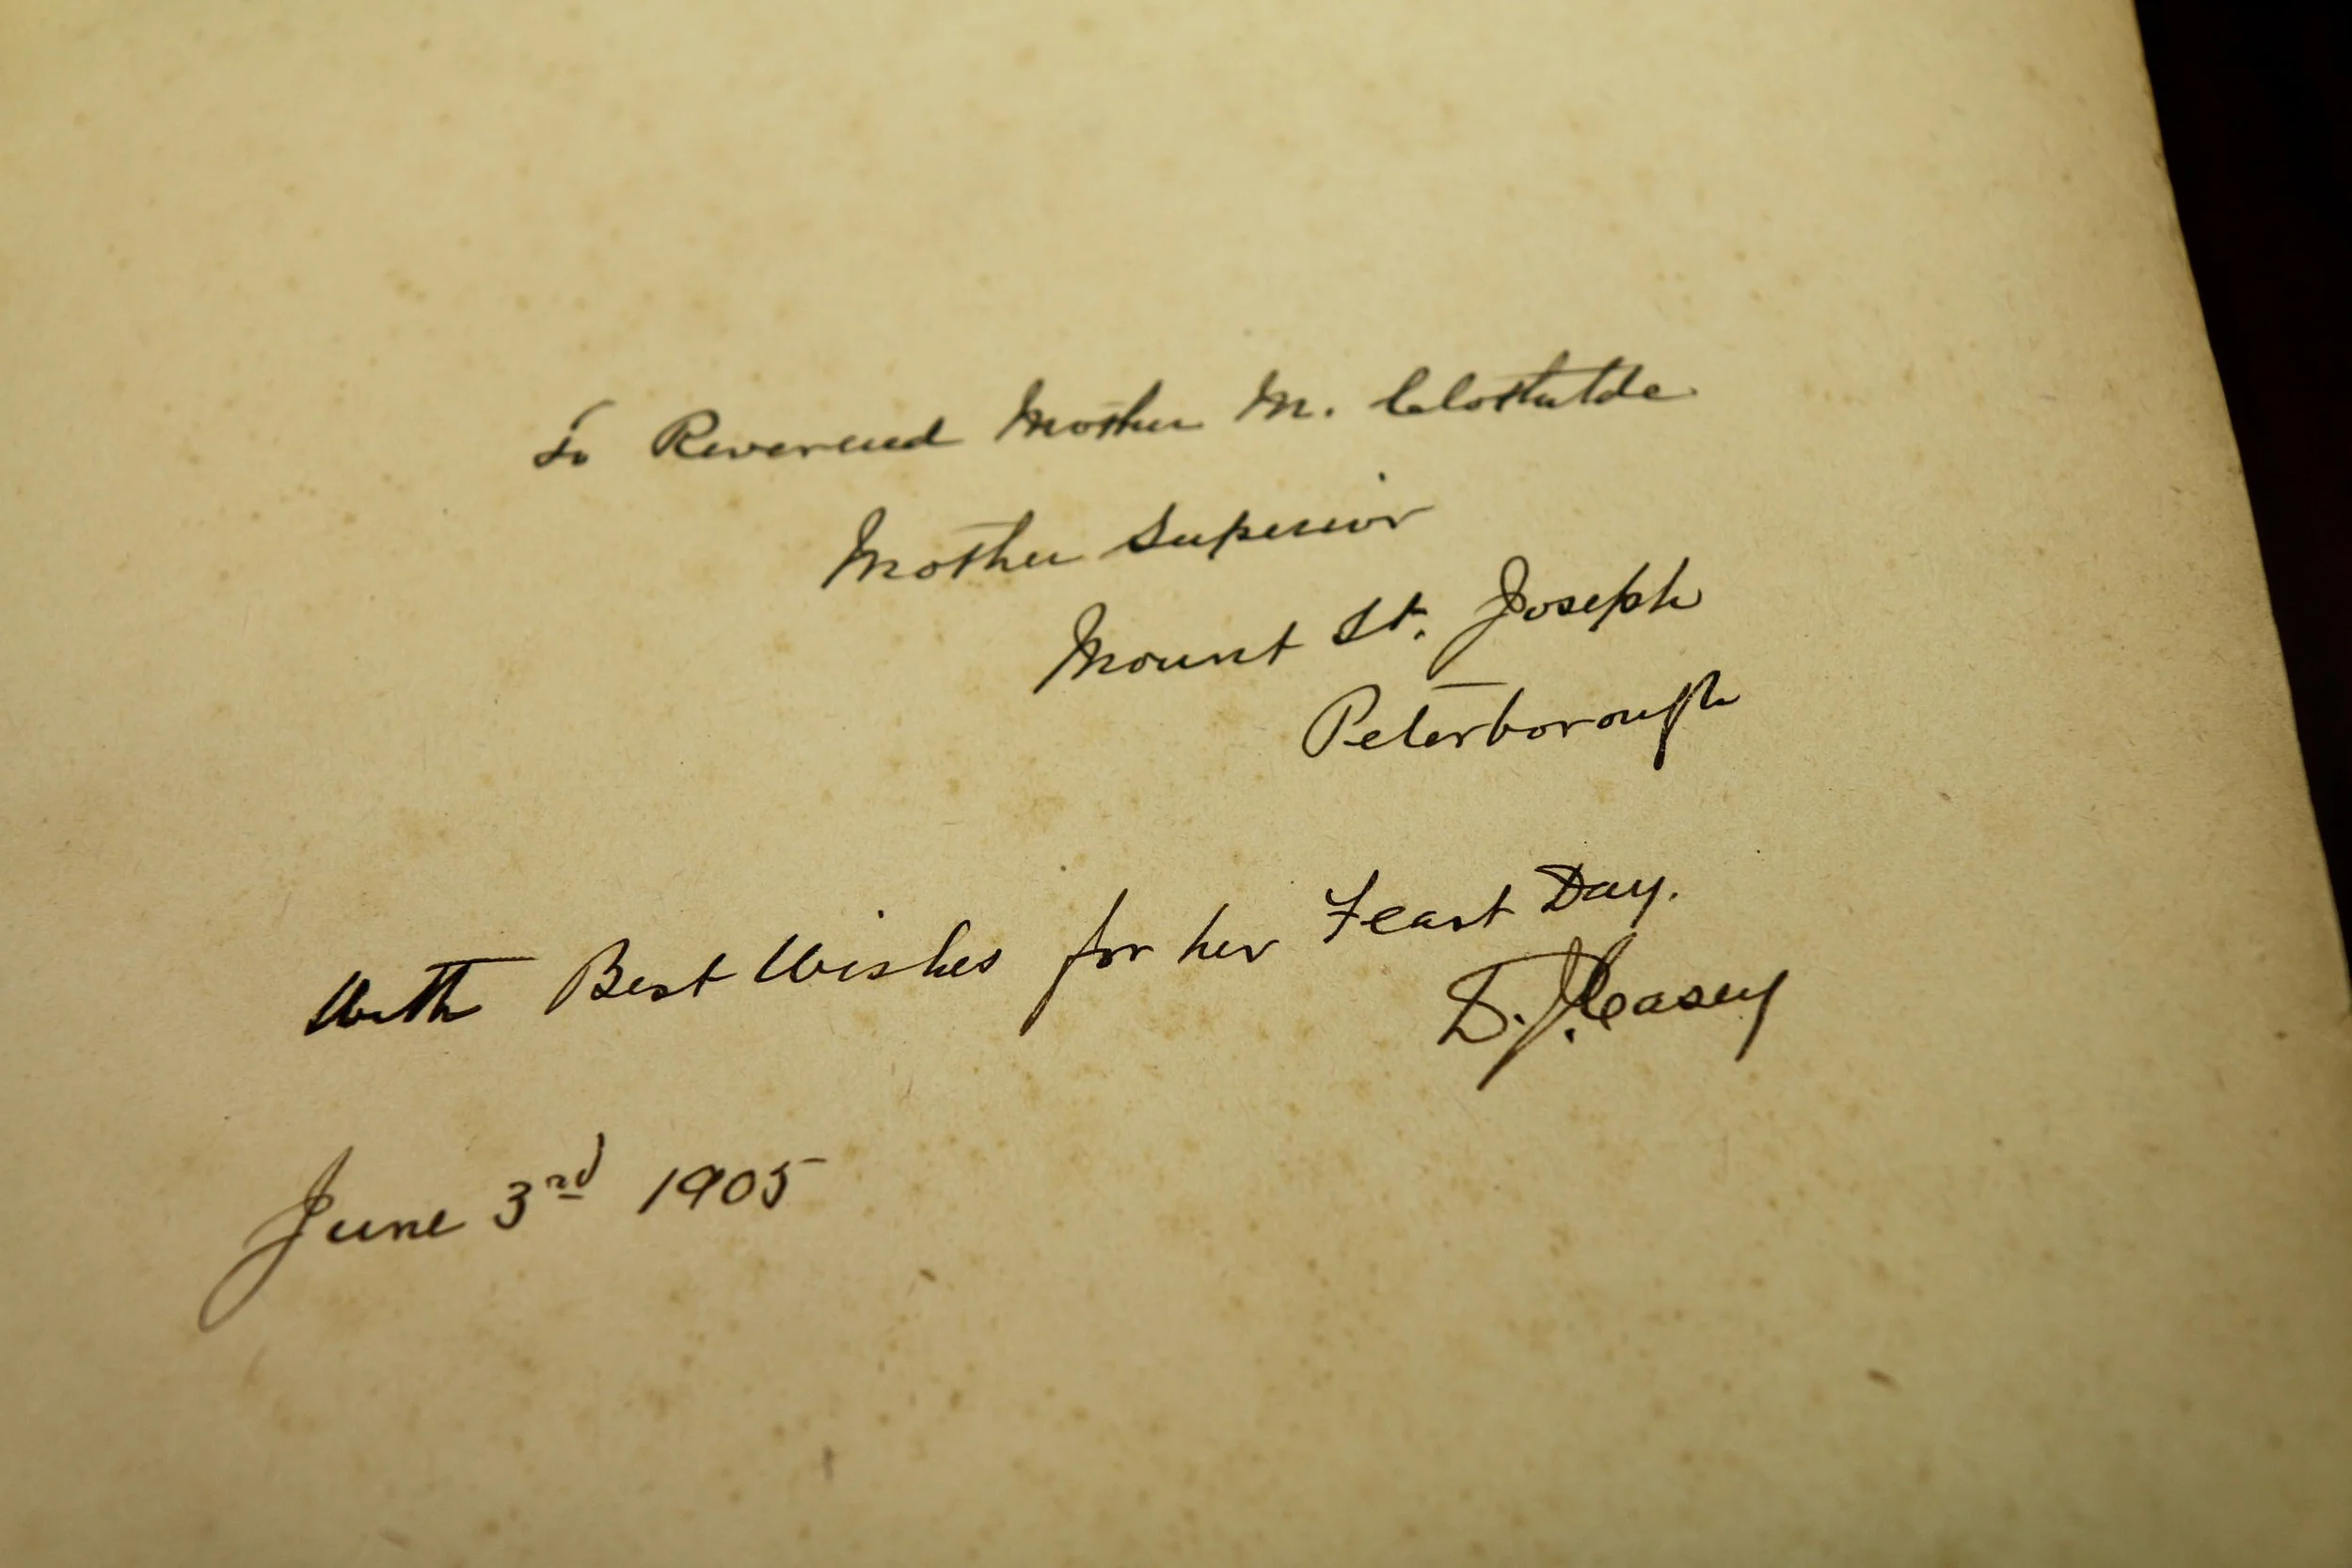 To Reverend Mother M. Clotilde
Mother Superior
Mount St. Joseph
Peterborough
With Best Wishes for her Feast Day.
D. J. Casey
June 3rd 1905